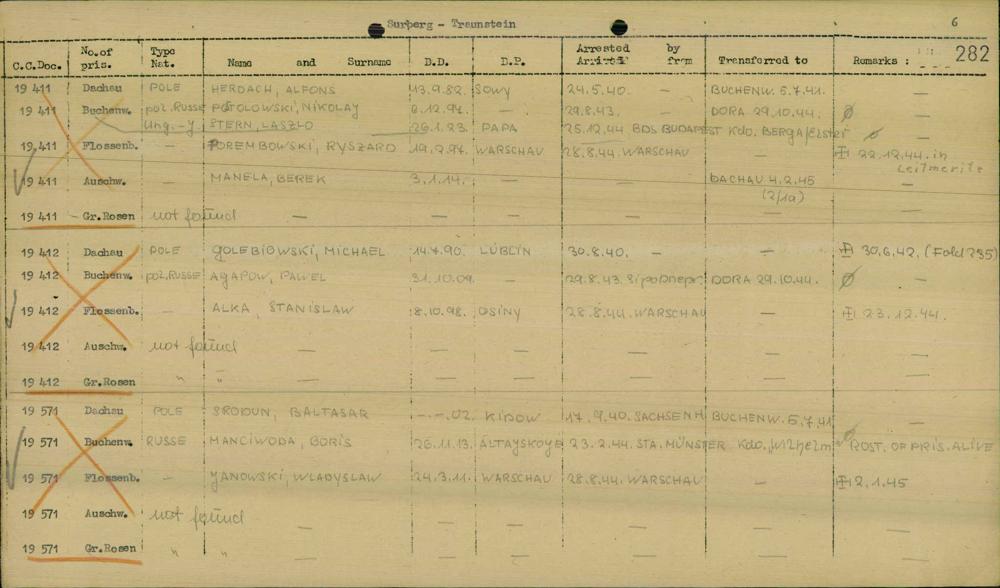 Surberg - Traunstein 6
282
C.C.Doc. No.of pris. Type Nat. Name and Surname D.D. D.P. Arrested by Arrived from Transferred to Remarks :
19 411 Dachau POLE HERDACH, ALFONS 13.9.82. SOWY 24.5.40. — BUCHENW. 5.7.41. —
19 411 Buchenw. pol. Russe POTOLOWSKI, NIKOLAY 6.12.97. — 29.8.43. — DORA 29.10.44. Ø
Ung.-J. STERN, LASZLO 26.1.23. PAPA 25.12.44 BDS BUDAPEST Kdo. BERGA/Elster Ø
19.411 Flossenb. — POREMBOWSKI, RYSZARD 19.2.97. WARSCHAU 28.8.44. WARSCHAU — 22.12.44. in Leitmeritz
19 411 Auschw. — MANELA, BEREK 3.1.14. — DACHAU 4.2.45 —
(2/1a)
19 411 - Gr.Rosen not found — — — — —
19 412 Dachau POLE GOLEBIOWSKI, MICHAEL 14.7.90. LUBLIN 30.8.40. — — 30.6.42. (Fold 235)
19 412 Buchenw. pol. RUSSE AGAPOW, PAWEL 31.10.09. — 29.8.43. Sipo Dnepr. DORA 29.10.44. Ø
19 412 Flossenb. — ALKA, STANISLAW 8.10.98. OSINY 28.8.44. WARSCHAU — 23.12.44.
19 412 Auschw. not found — — — — —
19 412 Gr.Rosen " " — — — — —
19 571 Dachau POLE SRODUN, BALTASAR —.—.02. KIDOW 17.9.40. SACHSENH. BUCHENW. 5.7.41 —
19 571 Buchenw. RUSSE MANCIWODA, BORIS 26.11.13. ALTAYSKOYE 23.2.44. STA. MÜNSTER Kdo. Wilhelm ROST. OF PRIS. ALIVE
19 571 Flossenb. — YANOWSKI, WLADYSLAW 24.3.11. WARSCHAU 28.8.44. WARSCHAU — 2.1.45
19 571 Auschw. not found — — — — —
19 571 Gr.Rosen " " — — — — —